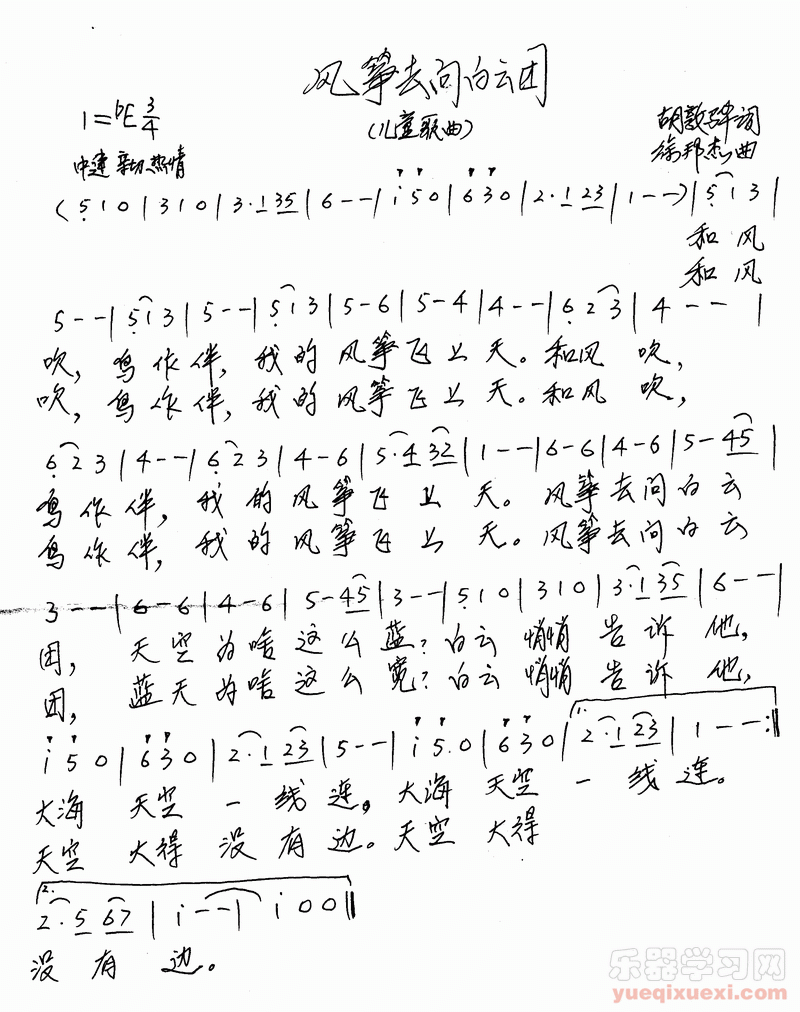 风筝去问白云团
1=♭E 3/4
(儿童歌曲)
胡敦骅词
中速 亲切 热情
徐邦杰曲
( 5 1 0 | 3 1 0 | 3·1 35 | 6 - - | i 5 0 | 6 3 0 | 2·1 23 | 1 - - ) | 5 1 3 |
和 风
和 风
5 - - | 5 1 3 | 5 - - | 5 1 3 | 5 - 6 | 5 - 4 | 4 - - | 6 2 3 | 4 - - |
吹, 鸟 作 伴, 我 的 风 筝 飞 上 天。 和 风 吹,
吹, 鸟 作 伴, 我 的 风 筝 飞 上 天。 和 风 吹,
6 2 3 | 4 - - | 6 2 3 | 4 - 6 | 5·4 32 | 1 - - | 6 - 6 | 4 - 6 | 5 - 45 |
鸟 作 伴, 我 的 风 筝 飞 上 天。 风 筝 去 问 白 云
鸟 作 伴, 我 的 风 筝 飞 上 天。 风 筝 去 问 白 云
3 - - | 6 - 6 | 4 - 6 | 5 - 45 | 3 - - | 5 1 0 | 3 1 0 | 3·1 35 | 6 - - |
团, 天 空 为 啥 这 么 蓝? 白 云 悄 悄 告 诉 他,
团, 蓝 天 为 啥 这 么 宽? 白 云 悄 悄 告 诉 他,
i 5 0 | 6 3 0 | 2·1 23 | 5 - - | i 5. 0 | 6 3 0 | 1. 2·1 23 | 1 - - :||
大 海 天 空 一 线 连, 大 海 天 空 一 线 连。
天 空 大 得 没 有 边。 天 空 大 得
2. 2·5 67 | i - - | i 0 0 ||
没 有 边。
乐器学习网
yueqixuexi.com